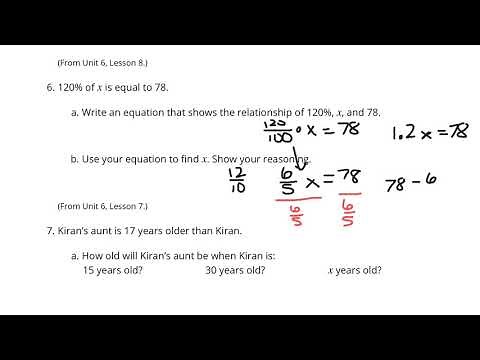 (From Unit 6, Lesson 8.)
6. 120% of x is equal to 78.
a. Write an equation that shows the relationship of 120%, x, and 78.
120/100 • x = 78
1.2x = 78
b. Use your equation to find x. Show your reasoning.
12/10
6/5 x = 78
6/5 6/5
78 - 6
(From Unit 6, Lesson 7.)
7. Kiran's aunt is 17 years older than Kiran.
a. How old will Kiran's aunt be when Kiran is:
15 years old? 30 years old? x years old?